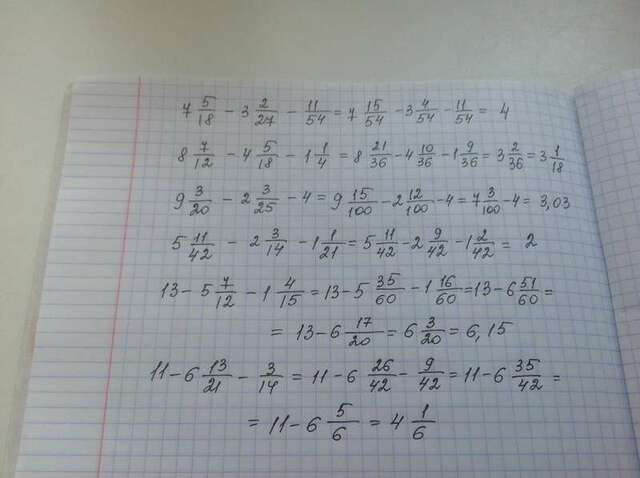 7 5/18 - 3 2/27 - 11/54 = 7 15/54 - 3 4/54 - 11/54 = 4
8 7/12 - 4 5/18 - 1 1/4 = 8 21/36 - 4 10/36 - 1 9/36 = 3 2/36 = 3 1/18
9 3/20 - 2 3/25 - 4 = 9 15/100 - 2 12/100 - 4 = 7 3/100 - 4 = 3,03
5 11/42 - 2 3/14 - 1 1/21 = 5 11/42 - 2 9/42 - 1 2/42 = 2
13 - 5 7/12 - 1 4/15 = 13 - 5 35/60 - 1 16/60 = 13 - 6 51/60 =
= 13 - 6 17/20 = 6 3/20 = 6,15
11 - 6 13/21 - 3/14 = 11 - 6 26/42 - 9/42 = 11 - 6 35/42 =
= 11 - 6 5/6 = 4 1/6